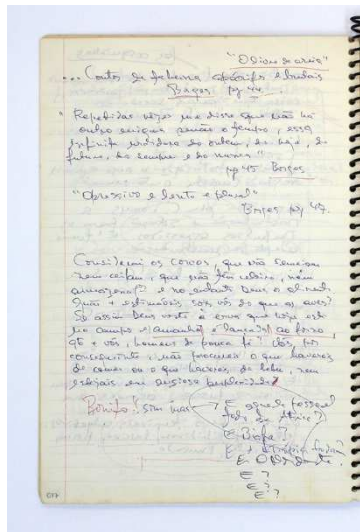 "O livro de areia"
... Contos de
Borges pg 44.
"Repetidas vezes me disse que não há
outro enigma senão o tempo, essa
infinita urdidura do ontem, do hoje, do
futuro, do sempre e do nunca"
pg 45 Borges
"Opressivo e lento e plural"
Borges pg 47.
Considerai os corvos, que não semeiam
nem ceifam, que não têm celeiro, nem
armazem; e no entanto Deus o
estimáveis sois vós do que as aves?
Se assim Deus veste a erva que hoje está
no campo e amanhã é lançada ao forno
a vós, homens de pouca fé? Vós, por
conseguinte, não procureis o que haveis
de comer ou o que haveis de beber, nem
estejais
Bonito! Sim mas
E aquele pessoal
E Biafra?
E a Etiópia
E ?
E ?
E ?